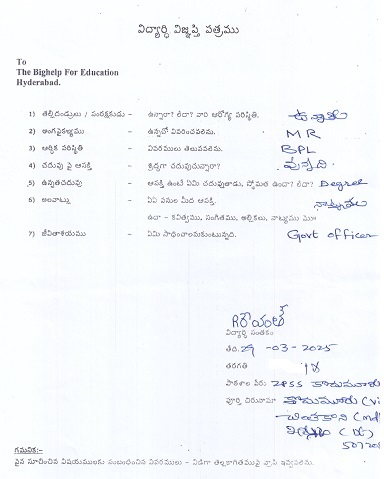 విద్యార్థి విజ్ఞప్తి పత్రము
To
The Bighelp For Education
Hyderabad.
1) తల్లిదండ్రులు / సంరక్షకుడు - ఉన్నారా? లేదా? వారి ఆరోగ్య పరిస్థితి. ఉన్నారు
2) అంగవైకల్యము - ఉన్నచో వివరించవలెను. MR
3) ఆర్థిక పరిస్థితి - వివరములు తెలుపవలెను. BPL
4) చదువు పై ఆసక్తి - శ్రద్ధగా చదువుచున్నారా?
5) ఉన్నతచదువు - ఆసక్తి ఉంటే ఏమి చదువుతాడు, స్తోమత ఉందా? లేదా? Degree
6) అలవాట్లు - ఏఏ పనుల మీద ఆసక్తి.
ఉదా - కవిత్వము, సంగీతము, అల్లికలు, నాట్యము
7) జీవితాశయము - ఏమి సాధించాలనుకుంటున్నది. Govt officer
విద్యార్థి సంతకం
తేది: 29 -03-2025
తరగతి
పాఠశాల పేరు:
పూర్తి చిరునామా
చింతకాని
గమనిక:-
పైన సూచించిన విషయములకు సంబంధించిన వివరములు - విడిగా తెల్లకాగితముపై వ్రాసి ఇవ్వవలెను.